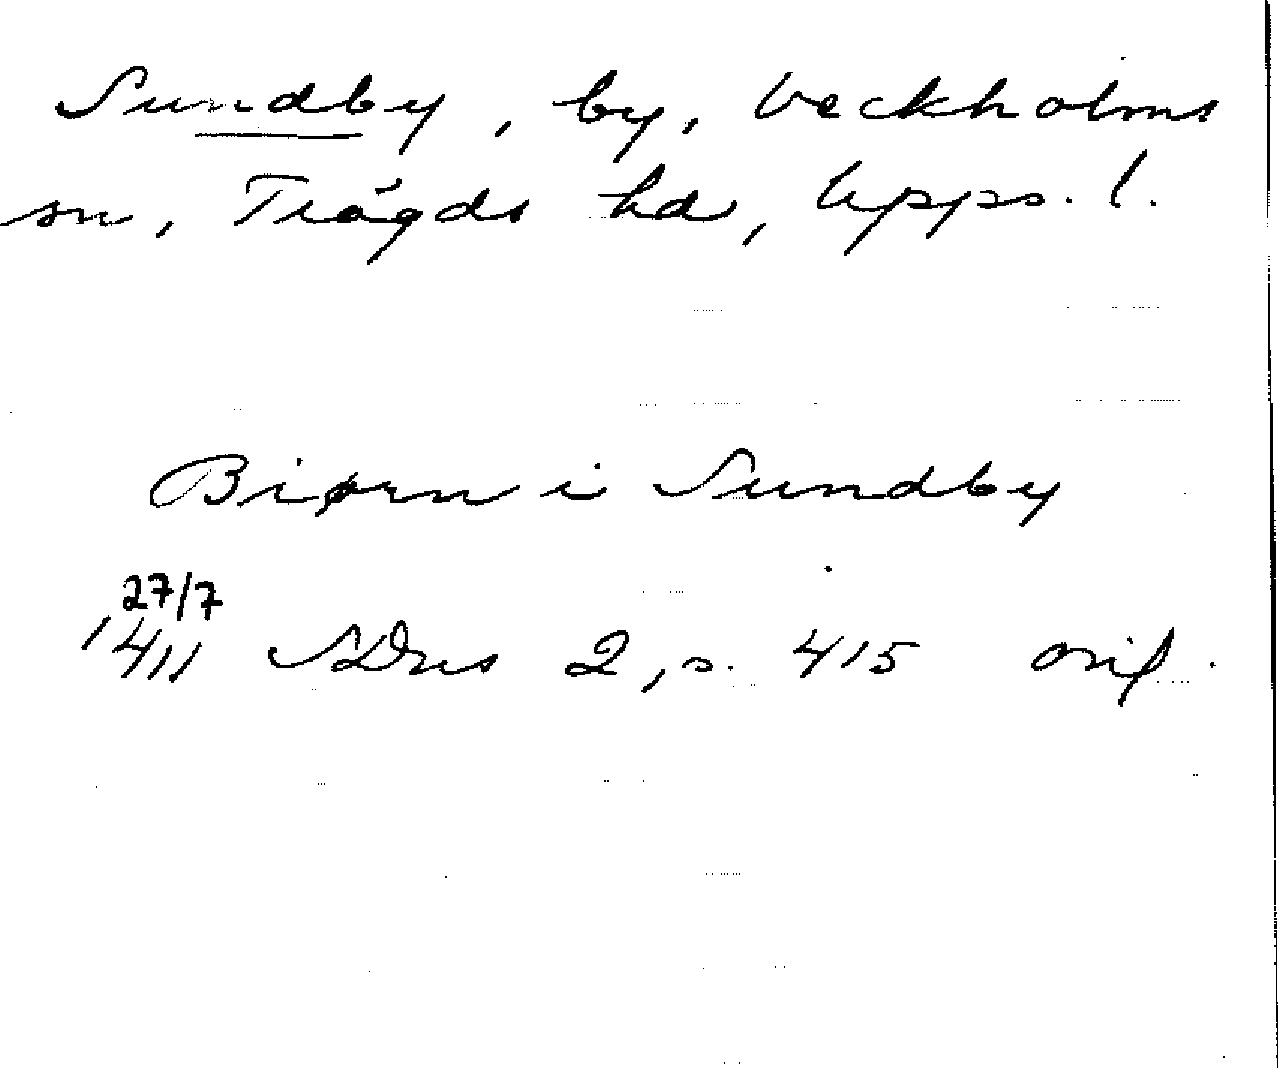 Sundby, by, Veckholms
sn, Trögds hd, Upps. l.
Biørn i Sundby
27/7
1411 SDns 2, s. 415 orig.